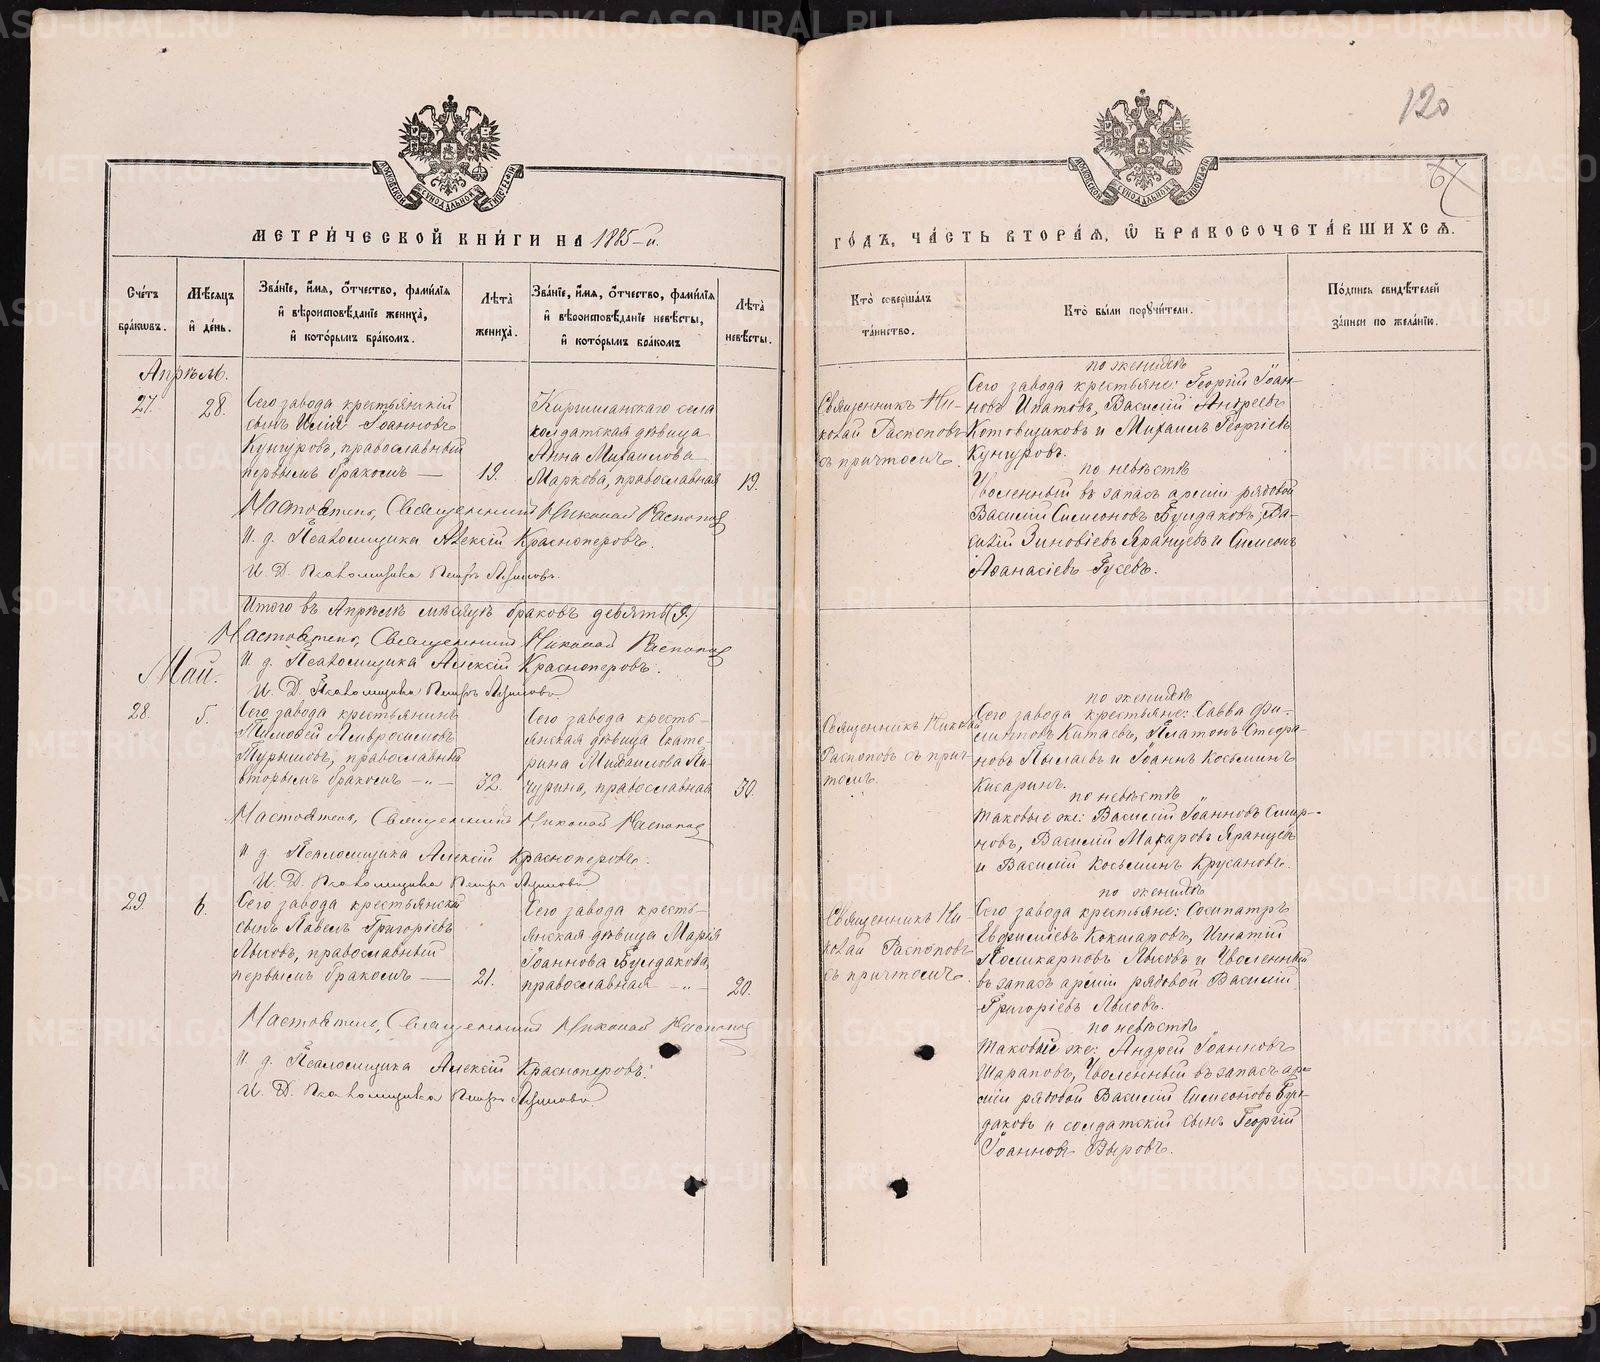 120
67
МЕТРИ́ЧЕСКОЙ КНИ́ГИ НА 1885-й.
ГО́ДЪ, ЧА́СТЬ ВТОРА́Я, Ѡ БРАКОСОЧЕТА́ВШИХСЯ.
Сче́тъ бра́кѡвъ.
Мѣ́сяцъ и҆ де́нь.
Зва́нїе, и҆́мя, ѻ҆́тчество, фами́лїя и҆ вѣроисповѣ́данїе жениха̀, и҆ кото́рымъ бра́комъ.
Лѣ́та̀ жениха̀.
Зва́нїе, и҆́мя, ѻ҆́тчество, фами́лїя и҆ вѣроисповѣ́данїе невѣ́сты, и҆ кото́рымъ бра́комъ
Лѣ́та̀ невѣ́сты.
Кто̀ соверша́лъ та́инство.
Кто̀ бы́ли порꙋчи́тели.
По́дпись свидѣ́телей за́писи по жела́нїю.
Апрѣль.
27.
28.
Сего завода крестьянскій
сынъ Илія Іоанновъ
Кунгуровъ, православный
первымъ бракомъ —
19.
Киргишанскаго села
солдатская дѣвица
Анна Михаилова
Маркова, православная
19.
Священникъ Ни-
колай Распоповъ
съ причтомъ.
по женихѣ
Сего завода крестьяне: Георгій Іоан-
новъ Ипатовъ, Василій Андреевъ
Котовщиковъ и Михаилъ Георгіевъ
Кунгуровъ.
по невѣстѣ
Уволенный въ запасъ арміи рядовой
Василій Симеоновъ Булдаковъ, Ва-
силій Зиновіевъ Яранцевъ и Симеонъ
Аѳанасіевъ Гусевъ.
Настоятель, Священникъ Николай Распопов
И. д. Псаломщика Алексій Красноперовъ.
И. Д. Псаломщика Петръ
Итого въ Апрѣлѣ мѣсяцѣ браковъ девять (9.)
Настоятель, Священникъ Николай Распопов
И. д. Псаломщика Алексій Красноперовъ.
И. Д. Псаломщика Петръ
Май.
28.
5.
Сего завода крестьянинъ
Тимоѳей Амвросимовъ
Турышовъ, православный
вторымъ бракомъ - „ -
32.
Сего завода кресть-
янская дѣвица Екате-
рина Михаилова Пи-
чурина, православная
30.
Священникъ Николай
Распоповъ съ прич-
томъ.
по женихѣ
Сего завода крестьяне: Савва Фи-
липповъ Китаевъ, Платонъ Стефа-
новъ Пылаевъ и Іоаннъ Косьминъ
Кисаринъ.
по невѣстѣ
таковые же: Василій Іоанновъ Смир-
новъ, Василій Макаровъ Яранцевъ
и Василій Косьминъ Крусановъ.
Настоятель, Священникъ Николай Распопов
И. д. Псаломщика Алексій Красноперовъ.
И. Д. Псаломщика Петръ
29.
6.
Сего завода крестьянскій
сынъ Павелъ Григоріевъ
Лысовъ, православный
первымъ бракомъ —
21.
Сего завода кресть-
янская дѣвица Марія
Іоаннова Булдакова,
православная - „ -
20.
Священникъ Ни-
колай Распоповъ
съ причтомъ.
по женихѣ
Сего завода крестьяне: Сосипатръ
Евфиміевъ Кокшаровъ, Игнатій
Поликарповъ Лысовъ и Уволенный
въ запасъ арміи рядовой Василій
Григоріевъ Лысовъ.
по невѣстѣ
таковые же: Андрей Іоанновъ
Шараповъ, Уволенный въ запасъ ар-
міи рядовой Василій Симеоновъ Бул-
даковъ и солдатскій сынъ Георгій
Іоанновъ Выровъ.
Настоятель, Священникъ Николай Распопов
И. д. Псаломщика Алексій Красноперовъ.
И. Д. Псаломщика Петръ